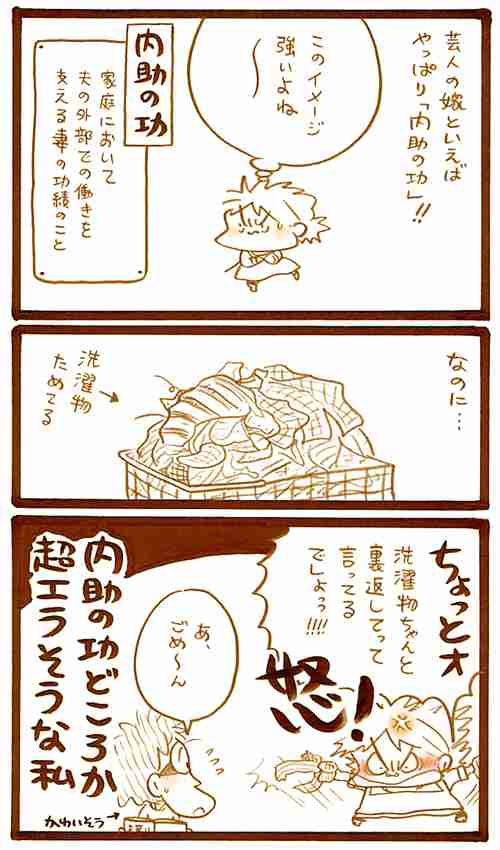 芸人の嫁といえば
やっぱり「内助の功」!!
このイメージ
強いよね
〜
内助の功
家庭において
夫の外部での働きを
支える妻の功績のこと
なのに…
洗濯物
ためてる
ちょっとォ
洗濯物ちゃんと
裏返してって
言ってる
でしょっ!!!!
怒!
あ、
ごめ〜ん
内助の功どころか
超エラそうな私
かわいそう